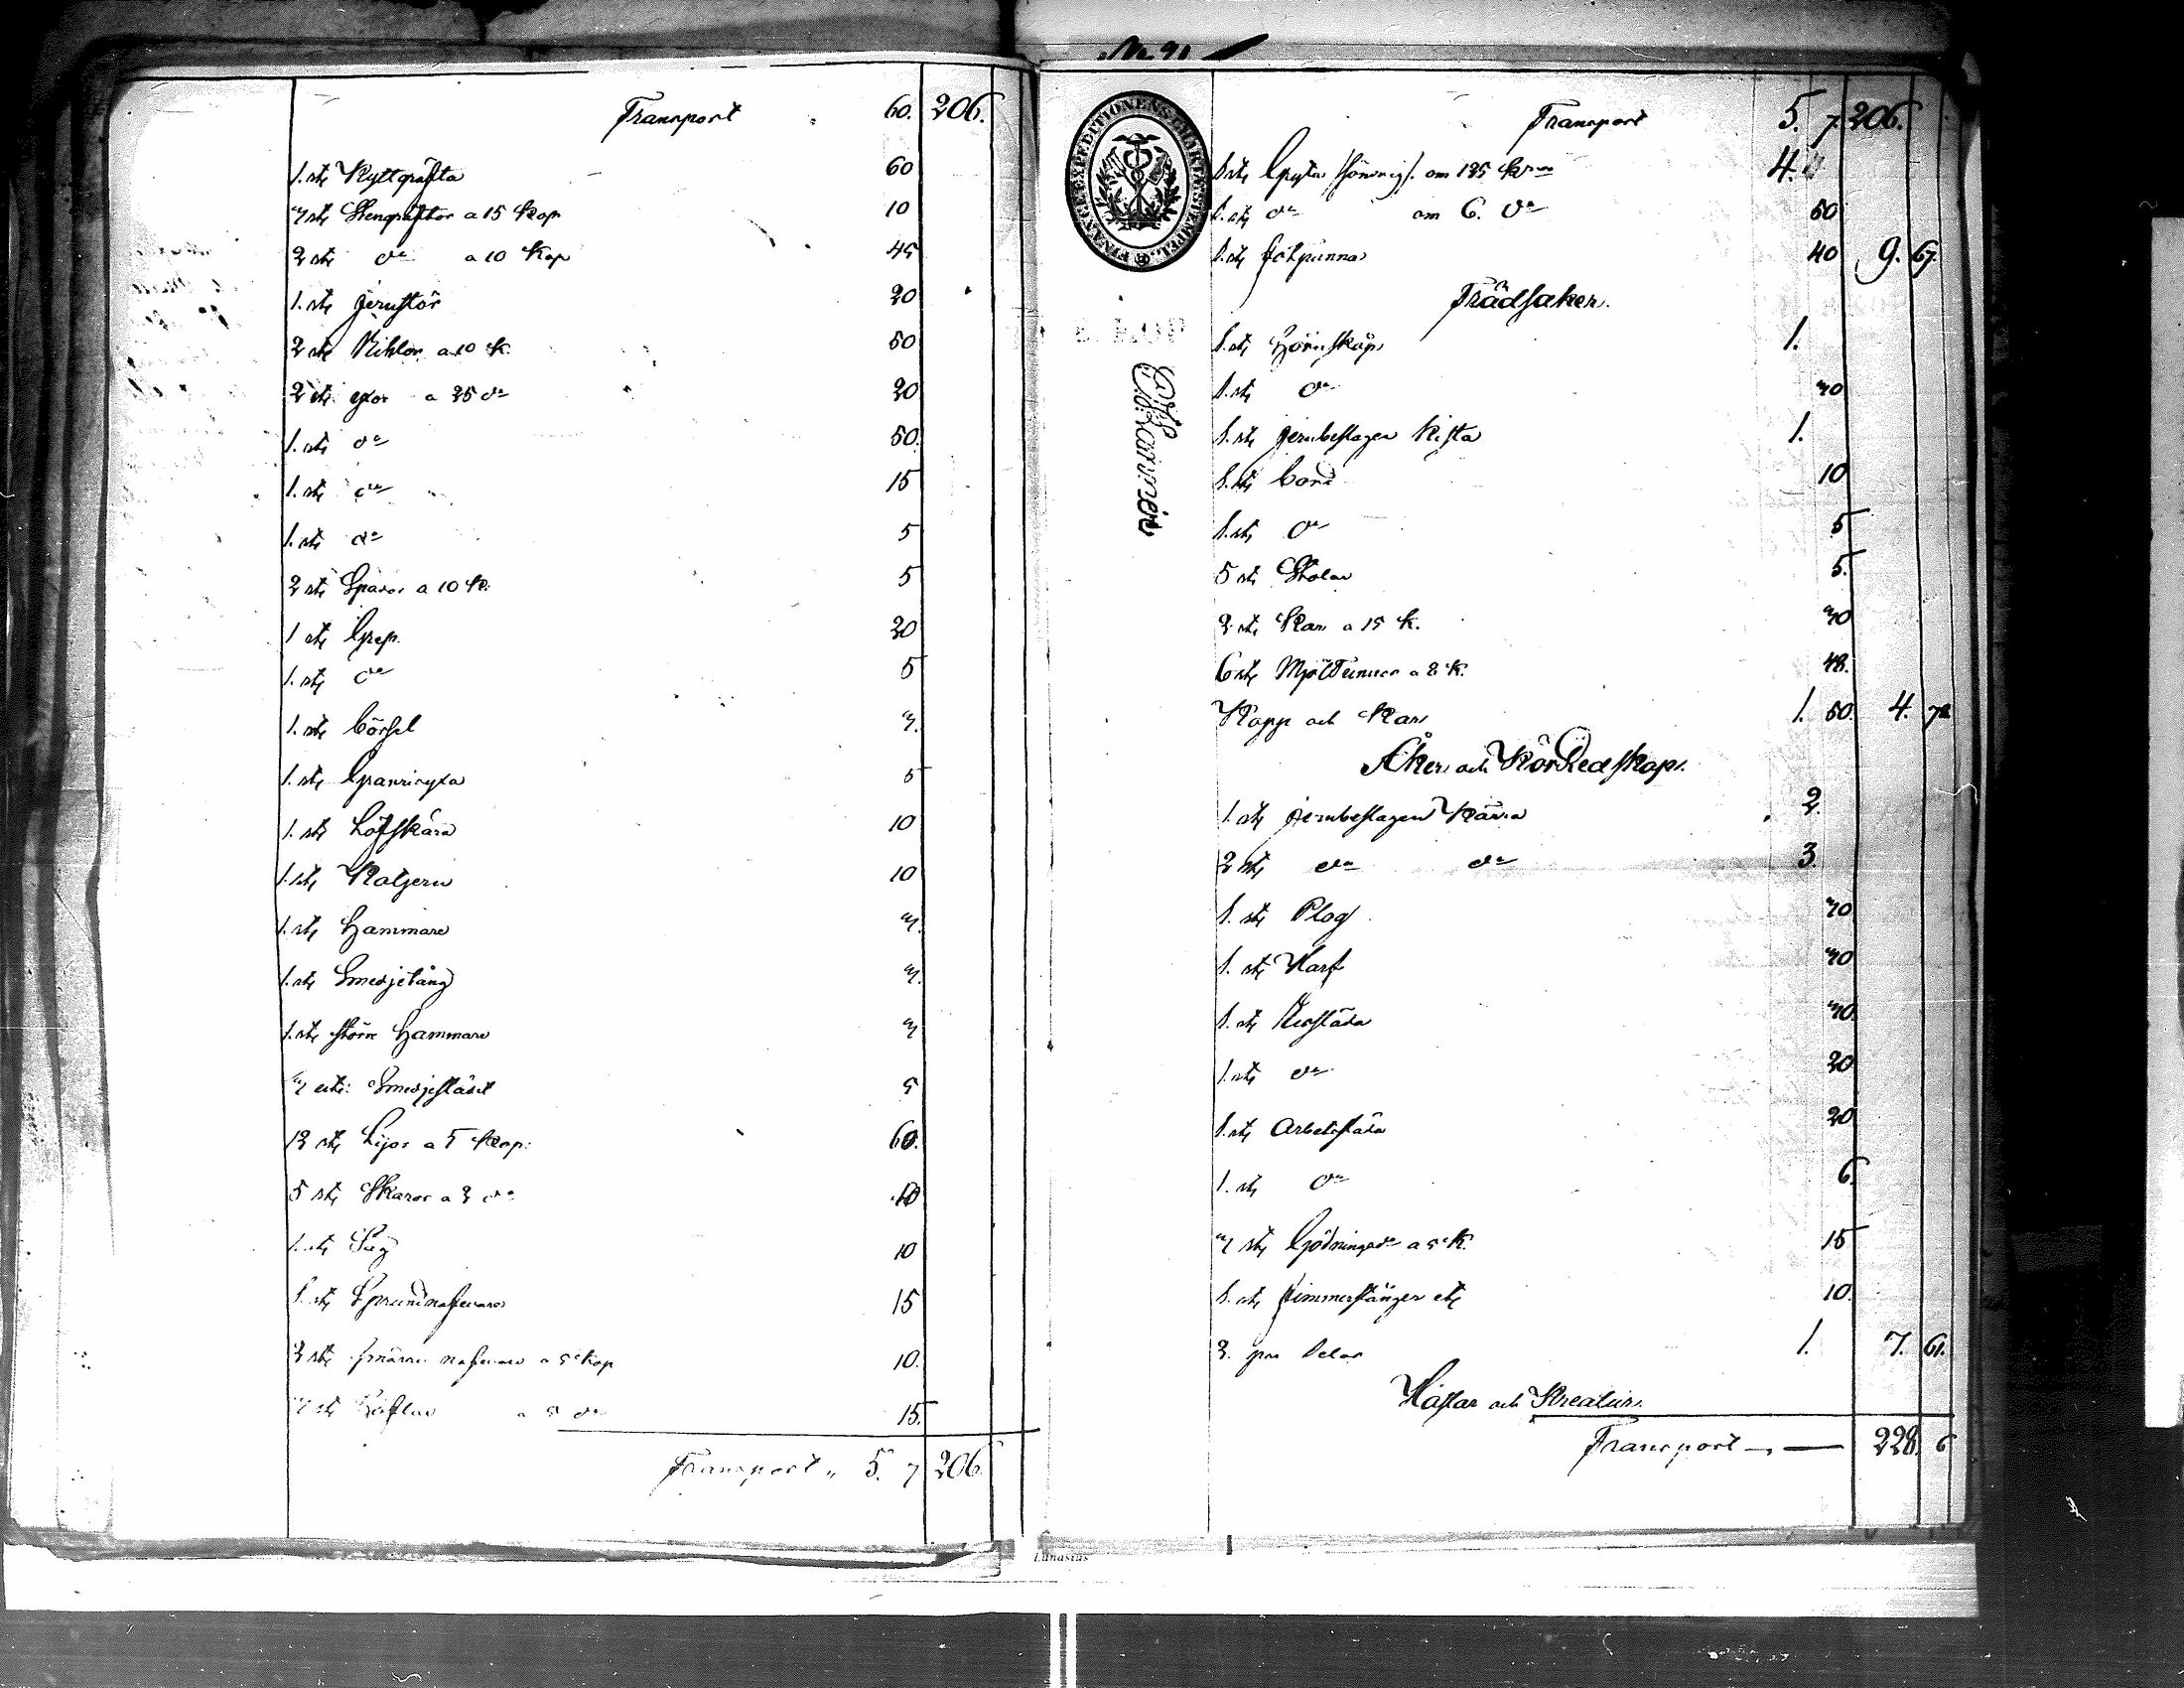 Transport 60. 206.
1. st Kyttgräfta 60
3 st Stengräftor a 15 kop 10
2 st do a 10 kop 45
1. st jernstör 20
2 st a 10 k. 50
2 st yxor a 25 do 20
1. st do 50.
1. st do 15
1. st do 5
2 st Spador a 10 k. 5
1 st Grep. 20
1. st do 5
1. st 3.
1. st 5
1. st Löfskära 10
1. st 10
1. st Hammare 3.
1. st Smedjetång 3.
1. st större Hammare 3
3 st: Smedjestäd 5
12 st Lijor a 5 kop: 60.
5 st Skäror a 2 do 10
1. st Såg 10
1. st Sprundnafvare 15
2 st smärre nafvare a 5 kop 10.
3 st a 5 do 15.
Transport „ 5. 7 206.
No 91
FINANCE EXPEDITIONENS CHARTÆ STEMPEL.
Transport 5. 7. 206.
1 st Gryta om 135 4.
1. st do om 6. do 50
1. st fotpanna 40 9. 67.
Trädsaker.
1. st Hörnskåp 1.
1. st do 30
1. st jernbeslagen kista 1.
1. st bord 10
1. st do 5
5 st Stolar 5.
2 st Kar a 15 k. 30
6 st Mjöltunnor a 8 k. 48.
Kopp och Kar 1. 50. 4. 78
Åker och Körredskap.
1. st jernbeslagen kärra 2.
2 st do do 3.
1. st Plog 30
1. st Harf 30
1. st 30.
1. st do 20
1. st Arbetsläda 20
1. st do 6.
3 st Gödningsdo a 5 k. 15
1. st Timmerstänger etc 10.
2. par Selar 1. 7. 61.
Hästar och Kreatur.
Transport — — 228. 6